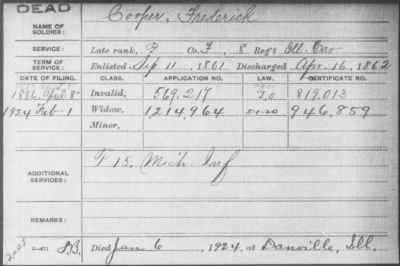 DEAD
NAME OF SOLDIER: Cooper, Frederick
SERVICE: Late rank, P Co. F, 8 Reg't Ill. Cav
TERM OF SERVICE: Enlisted Sep 11, 1861 Discharged Apr. 16, 1862
DATE OF FILING. CLASS. APPLICATION NO. LAW. CERTIFICATE NO.
1886 April 8 Invalid, 569.217 819.013
1924 Feb 1 Widow, 1,214,964 5-1-20 946,859
Minor,
ADDITIONAL SERVICES: F 15. Mich. Inf
REMARKS:
Died Jan 6, 1924, at Danville, Ill.